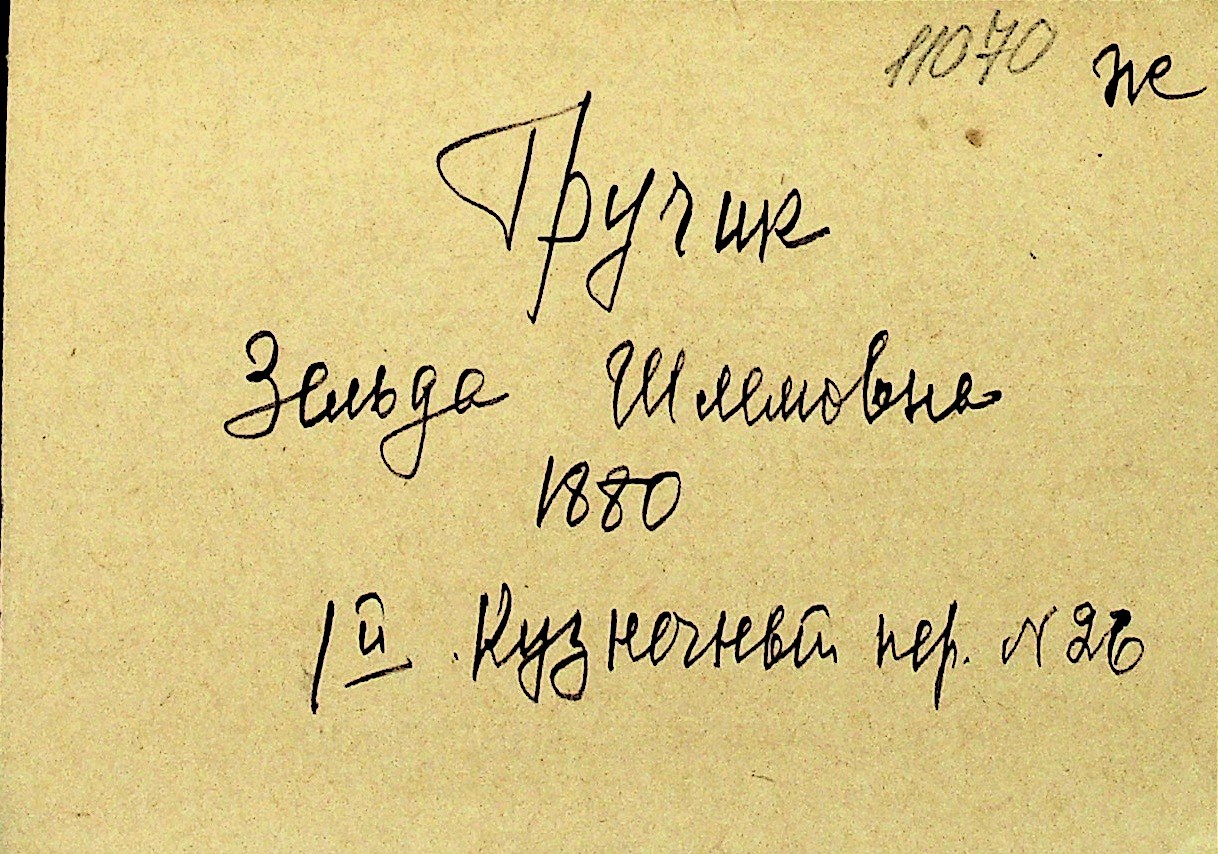 11070 не
Гручик
Зельда Шлемовна
1880
1й Кузнечный пер. N 26